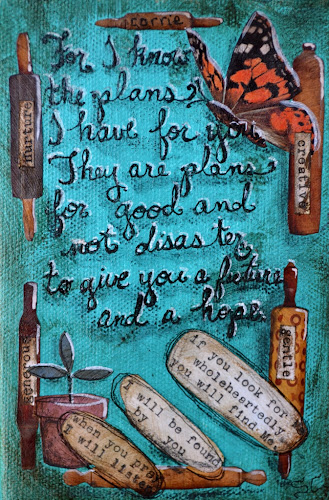 carrie
For I know
the plans
I have for you
They are plans
for good and
not disaster
to give you a future
and a hope.
nurture
creative
generous
gentle
if you look for
wholeheartedly
you will find Me
I will be found
by you
when you pray
I will listen